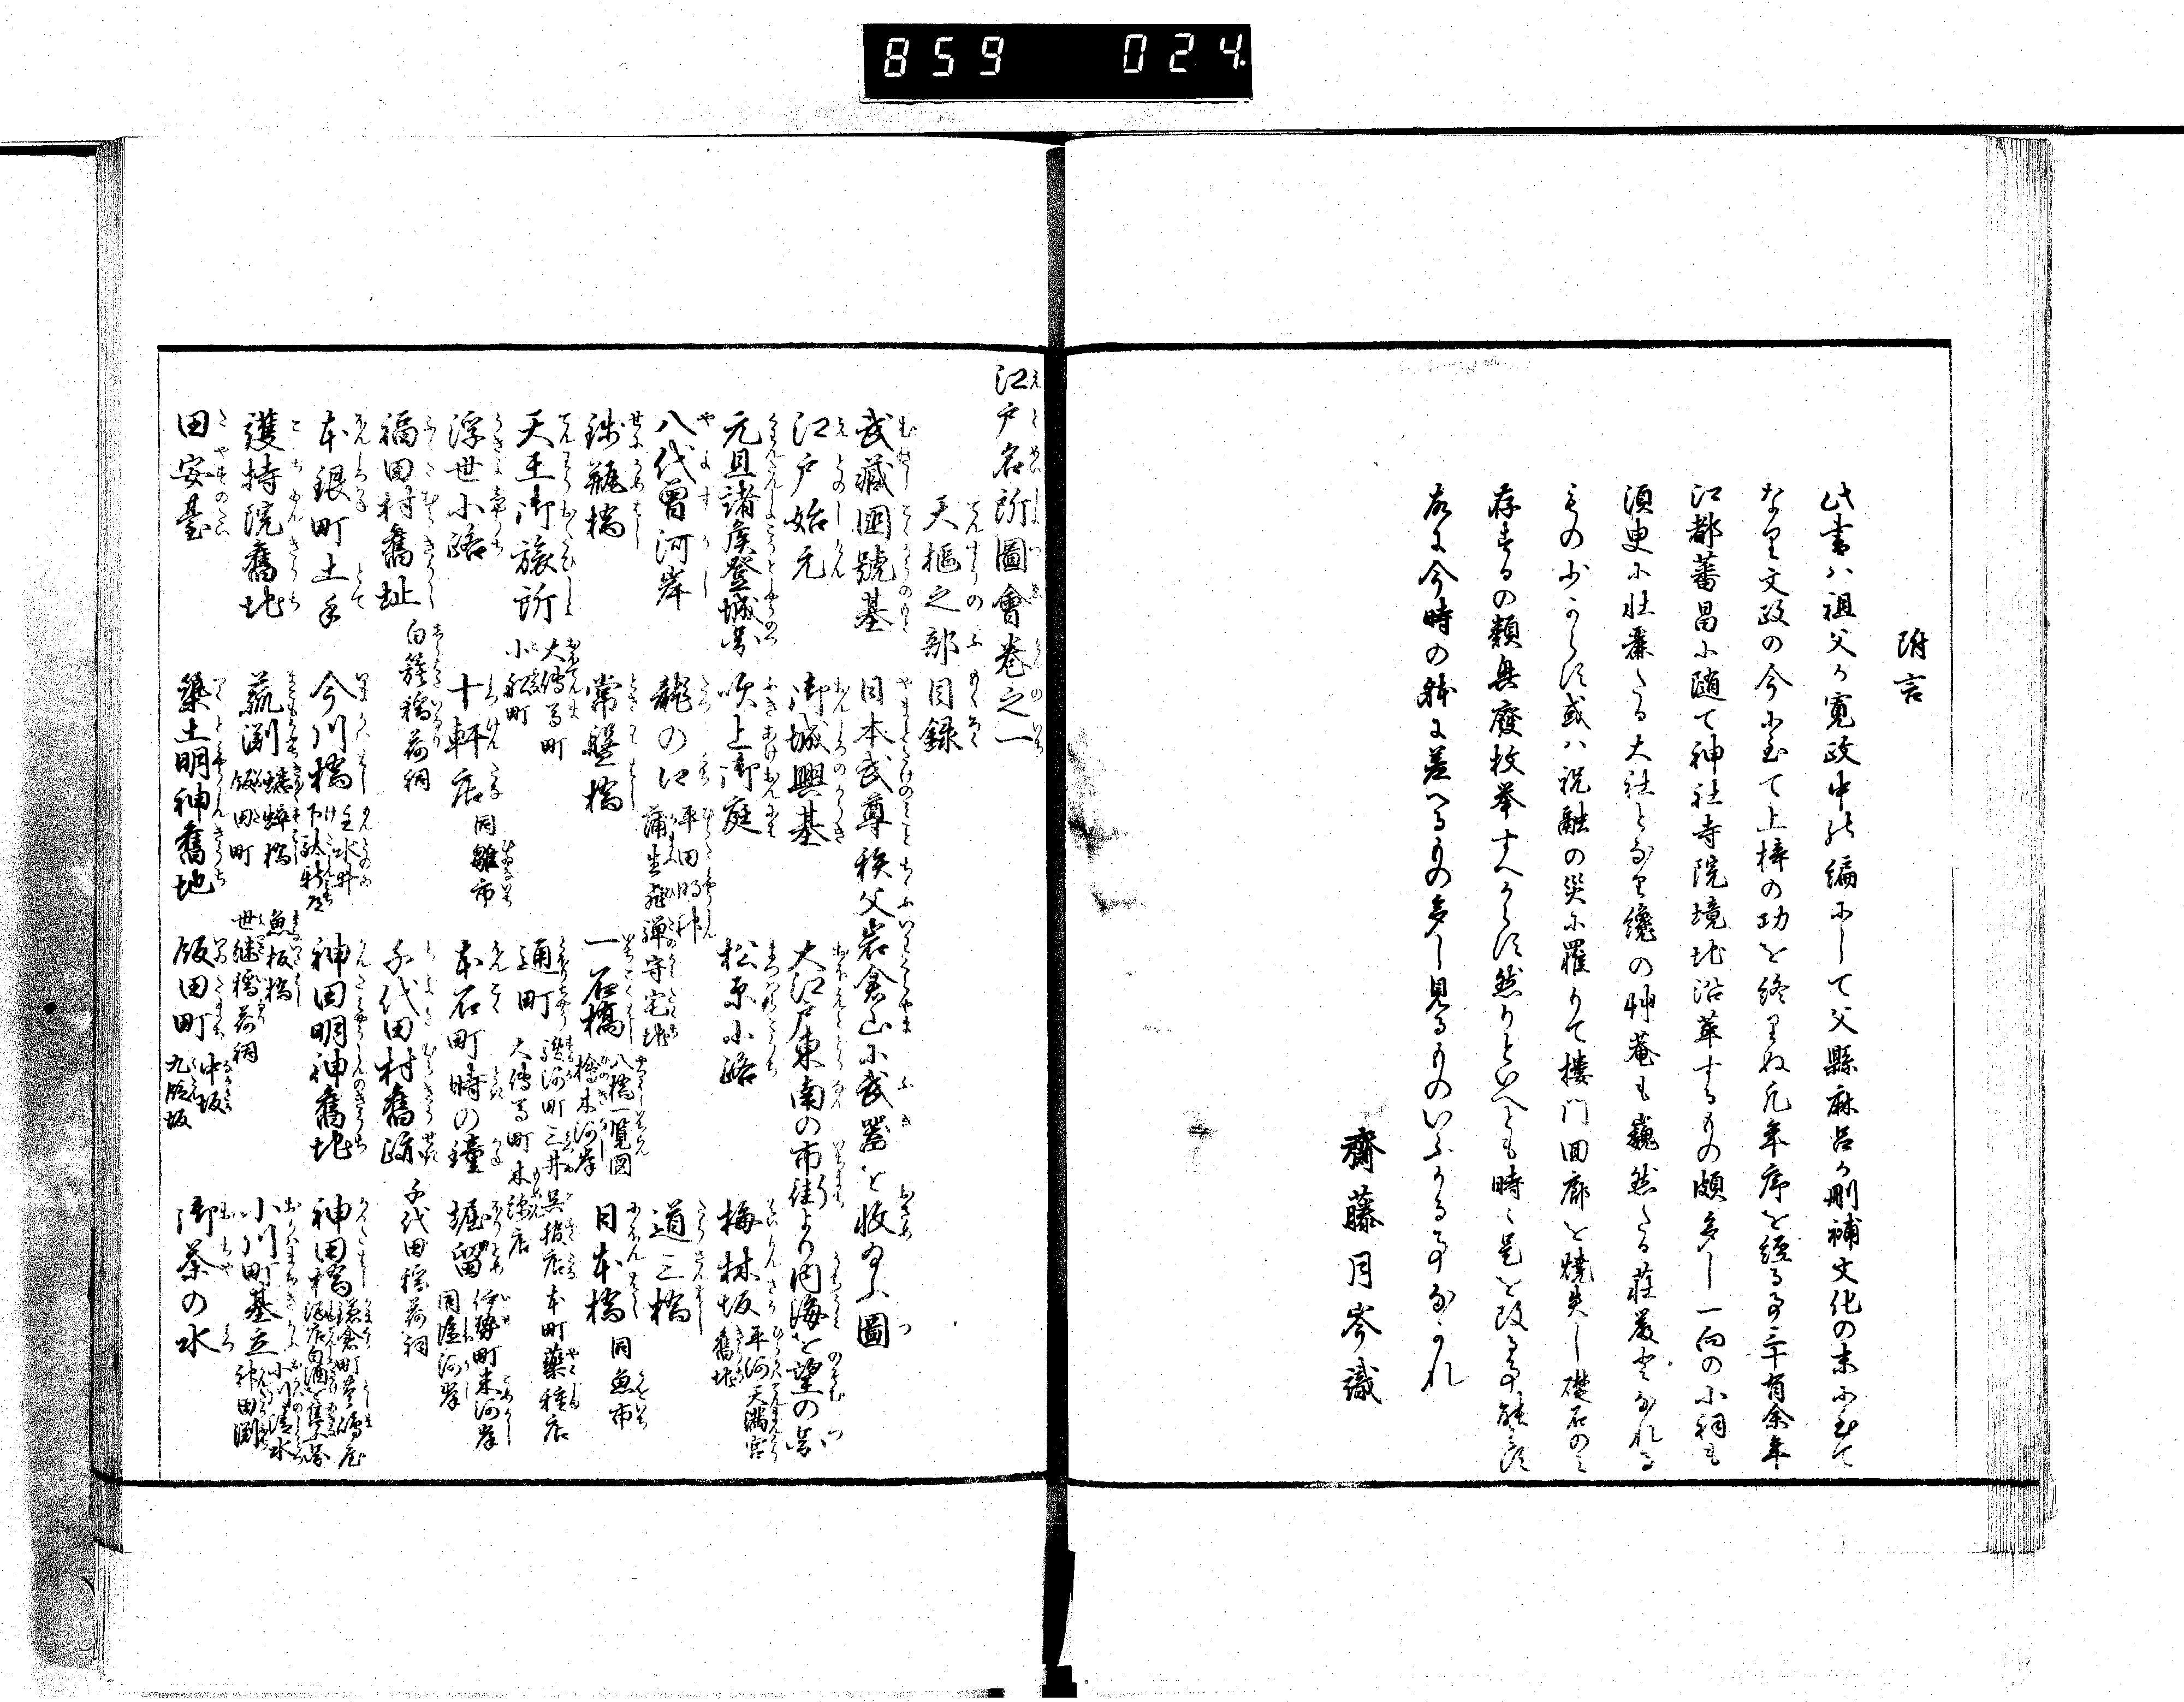 859 024
附言
此書ハ祖父が寛政中の編にして父縣麻呂が刪補文化の末に至て
なり文政の今に至て上梓の功を終りぬ凡年序を經る事三十有余年
江都蕃昌に随て神社寺院境地沿革するもの頗多し一向の小祠も
須臾に壮麗たる大社となり纔の艸菴も巍然たる荘嚴とはなれる
もの少からず或ハ祝融の災に罹りて樓門回廊を焼失し礎石のミ
存するの類興廢枚挙すべからず然りといへども時々是を改る事能はず
故に今時の躰に差へるもの多し見るものいぶかる事なかれ
齋藤月岑識
江戸名所圖會巻之一
天樞之部目録
武藏國號基 日本武尊秩父岩倉山に武器を收給ふ圖
江戸始元 御城興基 大江戸東南の市街より内海を望の圖
元旦諸侯登城圖 吹上御庭 松原小路 梅林坂 平河天満宮舊地
八代曽河岸 龍の口 平田明神 蒲生飛彈守宅地 道三橋
銭瓶橋 常盤橋 一石橋 八橋一覧図 檜木河岸 日本橋 同魚市
天王御旅所 大傳馬町 小舩町 通町 駿河町三井呉服店 大傳馬町木綿店 本町藥種店
浮世小路 十軒店 同雛市 本石町時の鐘 堀留 伊勢町米河岸 同塩河岸
福田村舊址 白籏稲荷祠 千代田村舊跡 千代田稲荷祠
本銀町土手 今川橋 主水井 下駄新道 神田明神舊地 神田橋 鎌倉町豊嶋屋酒店白酒を售ふ圖
護持院舊地 蓊渕 蟋蟀橋 飯田町 魚板橋 世継稲荷祠 小川町基立 小川清水 神田渕
田安臺 築土明神舊地 飯田町 中坂 九段坂 御茶の水